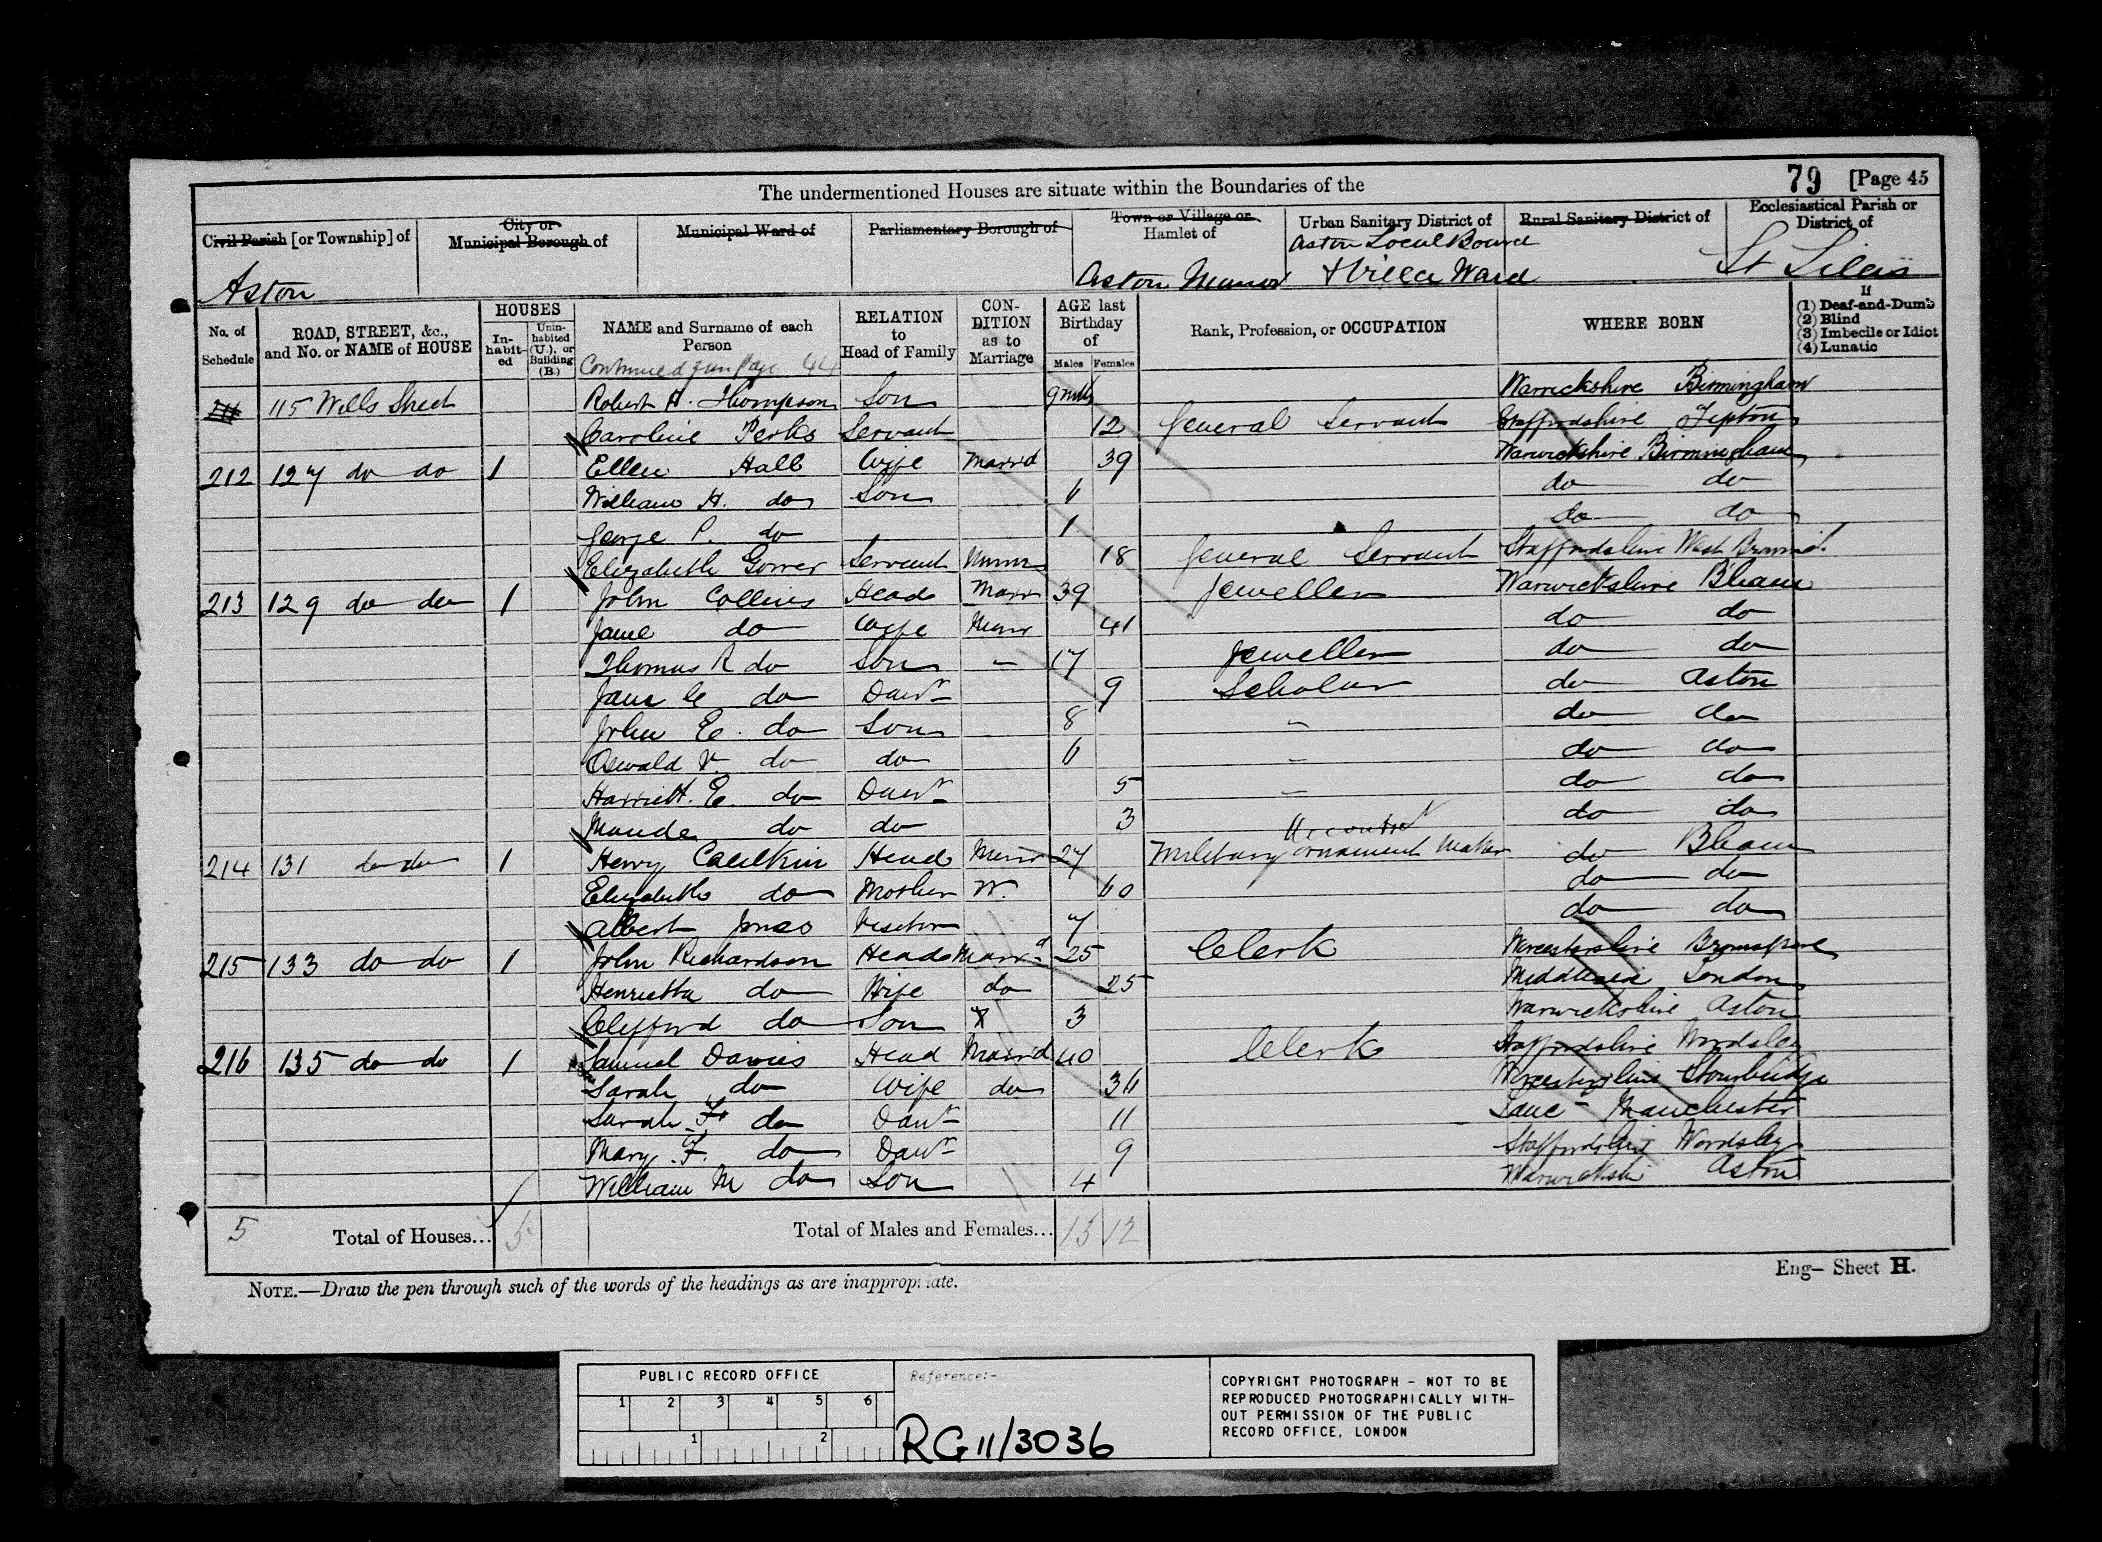 The undermentioned Houses are situate within the Boundaries of the
79 [Page 45
Civil Parish [or Township] of
City or Municipal Borough of
Municipal Ward of
Parliamentary Borough of
Town or Village or Hamlet of
Urban Sanitary District of
Rural Sanitary District of
Ecclesiastical Parish or District of
Aston
Aston Manor
Aston Local Board
Villa Ward
St Silas
No. of Schedule
ROAD, STREET, &c., and No. or NAME of HOUSE
HOUSES
In-habit-ed
Unin-habited (U.), or Building (B.)
NAME and Surname of each Person
RELATION to Head of Family
CON-DITION as to Marriage
AGE last Birthday of
Males Females
Rank, Profession, or OCCUPATION
WHERE BORN
If
(1) Deaf-and-Dumb
(2) Blind
(3) Imbecile or Idiot
(4) Lunatic
Continued from Page 44
115 Wells Street Robert H. Thompson Son 9 mths Warwickshire Birmingham
Caroline Perks Servant 12 General Servant Staffordshire Tipton
212 127 do do 1 Ellen Hall Wife Marrd 39 Warwickshire Birmingham
William H. do Son 6 do do
George P. do 1 do do
Elizabeth Servant 18 General Servant Staffordshire West Bromd.
213 129 do do 1 John Collins Head Marr 39 Jeweller Warwickshire Bham
Jane do Wife Marr 41 do do
Thomas R do Son - 17 Jeweller do do
Jane C do Daur 9 Scholar do Aston
John E. do Son 8 - do do
Oswald V. do do 6 - do do
Harriett. E. do Daur 5 - do do
Maude do do 3 do do
214 131 do do 1 Henry Caulkin Head Marr 27 Military ornament maker do Bham
Elizabeth do Mother W. 60 do do
Albert Jones Visitor 7 do do
215 133 do do 1 John Richardson Head Marrd 25 Clerk Worcestershire Bromsgrove
Henrietta do Wife do 25 Middlesex London
Clifford do Son X 3 Warwickshire Aston
216 135 do do 1 Samuel Davies Head Marrd 40 Clerk Staffordshire Wordsley
Sarah do Wife do 36 Worcestershire Stourbridge
Sarah F. do Daur 11 Lanc - Manchester
Mary F. do Daur 9 Staffordshire Wordsley
William M do Son 4 Warwickshi Aston
5 Total of Houses... 5 Total of Males and Females... 15 12
NOTE.—Draw the pen through such of the words of the headings as are inappropriate.
Eng— Sheet H.
PUBLIC RECORD OFFICE
1 2 3 4 5 6
1 2
Reference:-
RG 11/3036
COPYRIGHT PHOTOGRAPH - NOT TO BE
REPRODUCED PHOTOGRAPHICALLY WITH-
OUT PERMISSION OF THE PUBLIC
RECORD OFFICE, LONDON